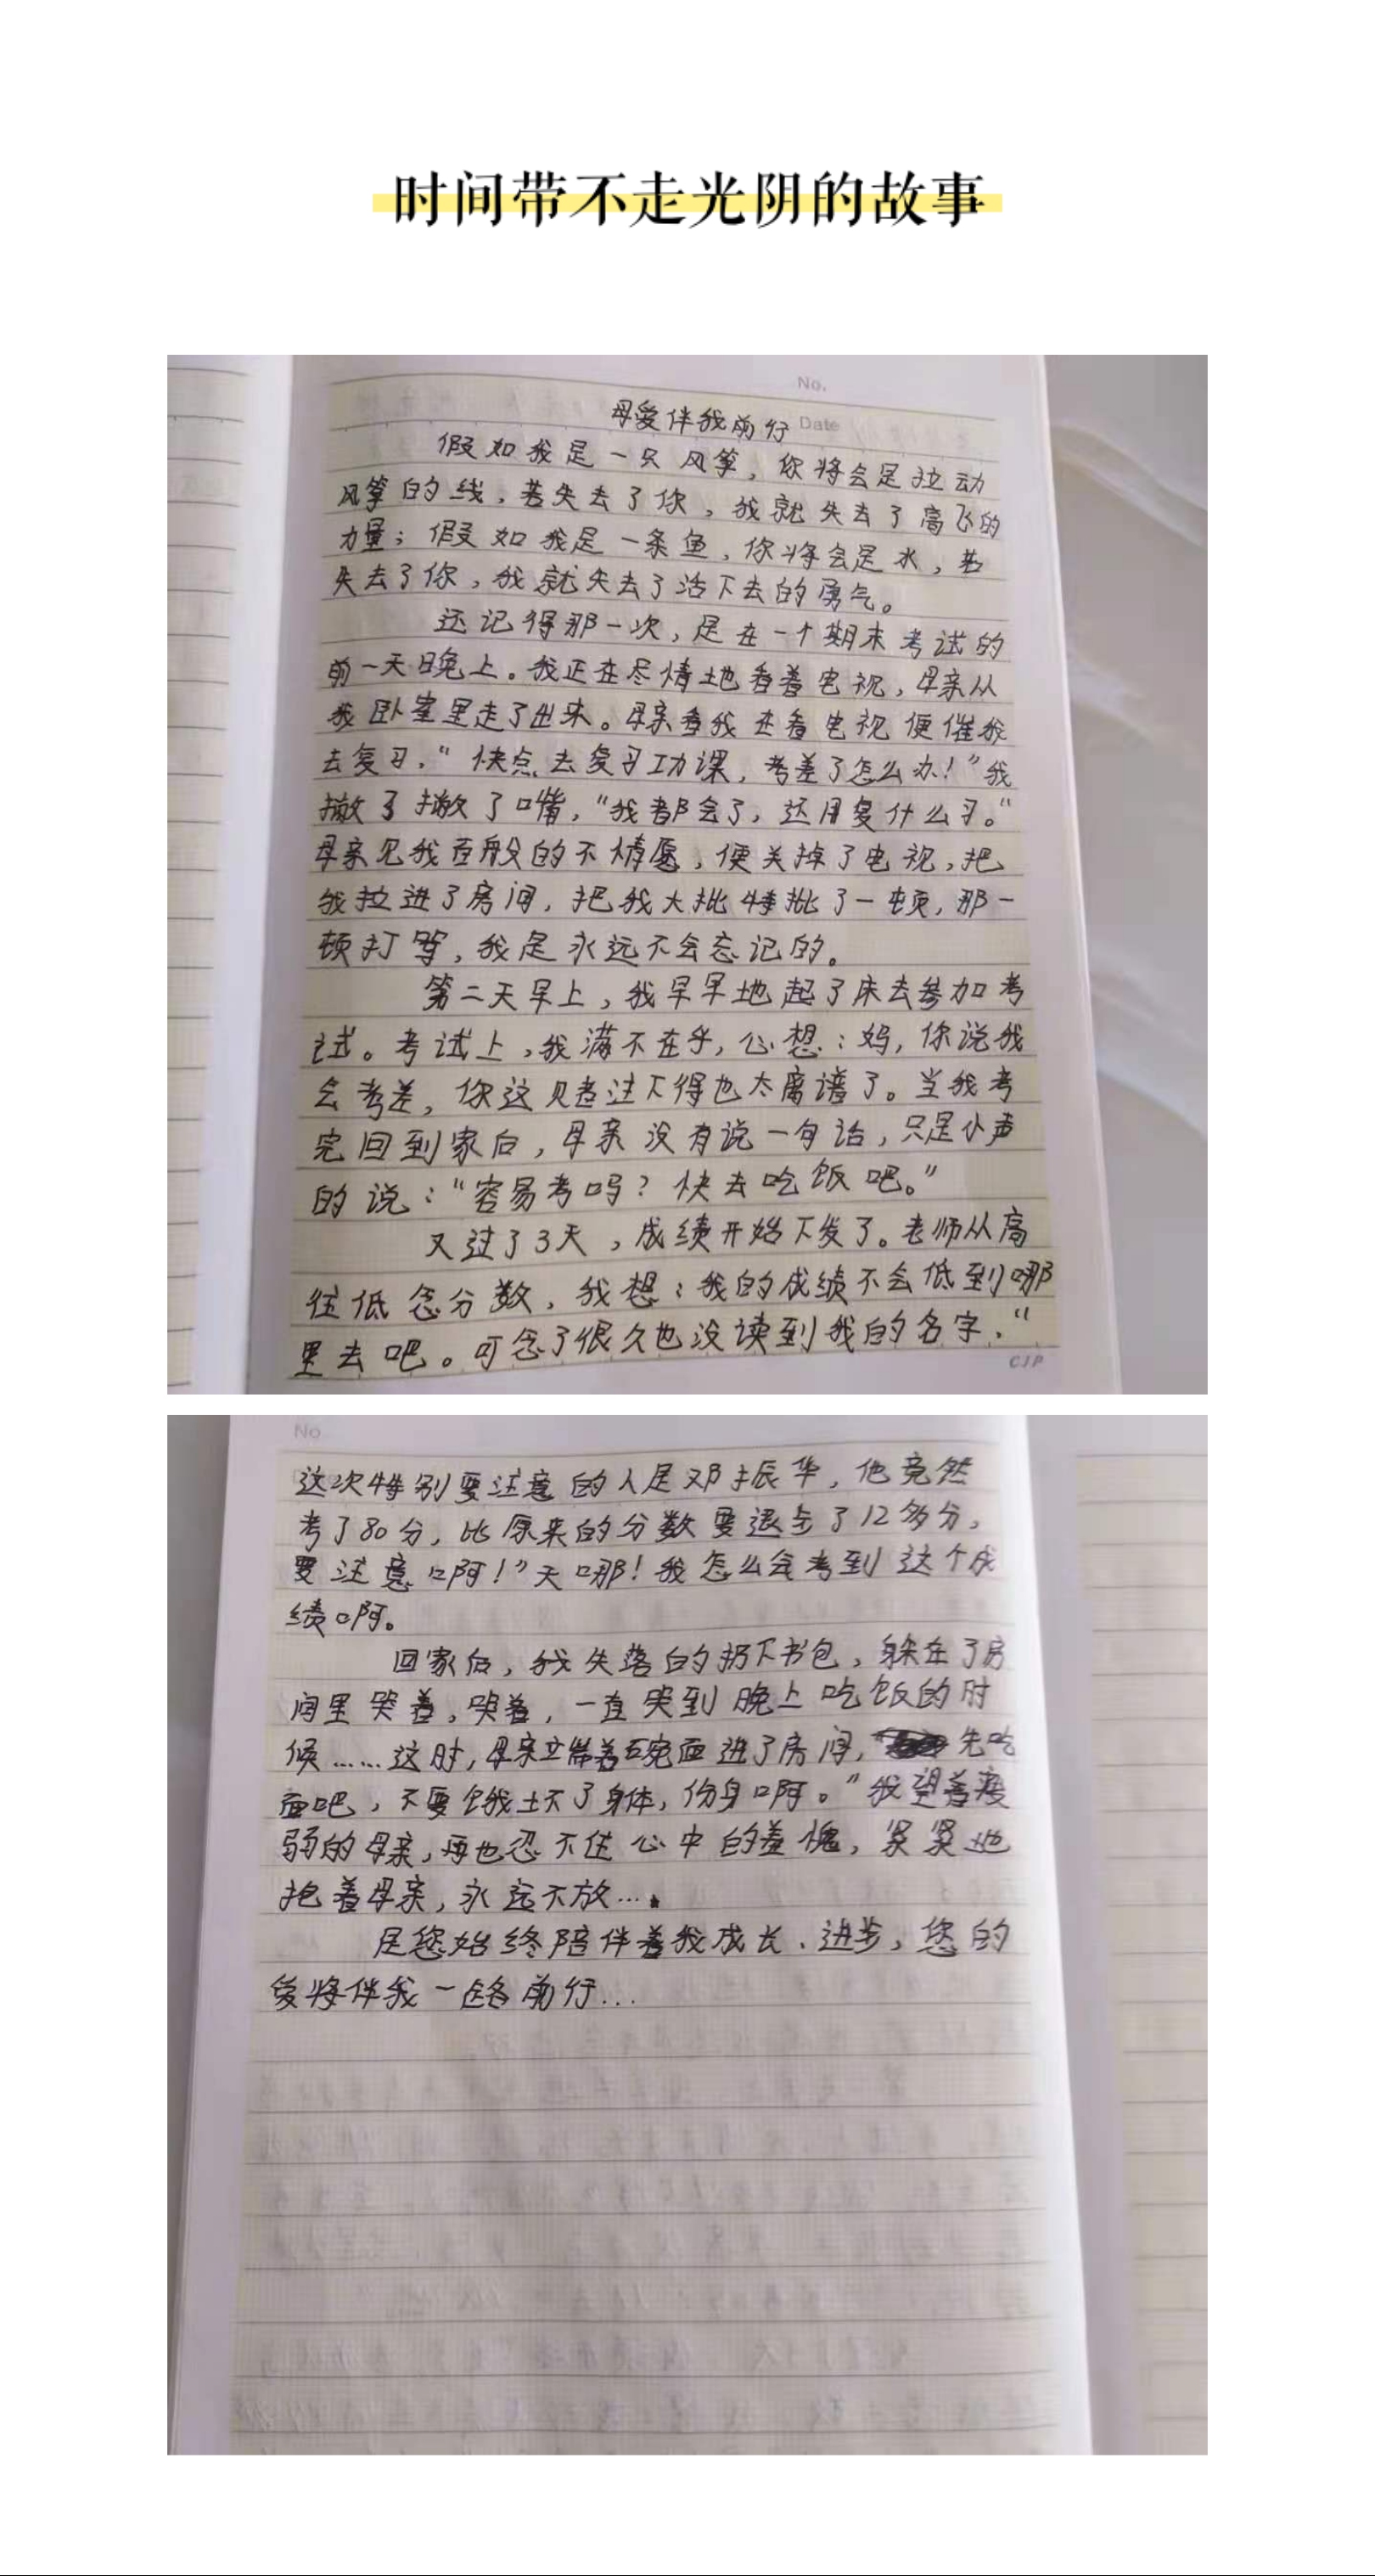 时间带不走光阴的故事
No.
Date
母爱伴我前行
假如我是一只风筝，你将会是拉动
风筝的线，若失去了你，我就失去了高飞的
力量；假如我是一条鱼，你将会是水，若
失去了你，我就失去了活下去的勇气。
还记得那一次，是在一个期末考试的
前一天晚上。我正在尽情地看着电视，母亲从
我卧室里走了出来。母亲看我在看电视便催我
去复习，“快点去复习功课，考差了怎么办！”我
撇了撇了嘴，“我都会了，还用复什么习。“
母亲见我百般的不情愿，便关掉了电视，把
我拉进了房间，把我大批特批了一顿，那一
顿打骂，我是永远不会忘记的。
第二天早上，我早早地起了床去参加考
试。考试上，我满不在乎，心想：妈，你说我
会考差，你这赌注下得也太离谱了。当我考
完回到家后，母亲没有说一句话，只是小声
的说：“容易考吗？快去吃饭吧。”
又过了3天，成绩开始下发了。老师从高
往低念分数，我想：我的成绩不会低到哪
里去吧。可念了很久也没读到我的名字，“
CJP
No
这次特别要注意的人是邓振华，他竟然
考了80分，比原来的分数要退步了12多分，
要注意啊！”天哪！我怎么会考到这个成
绩啊。
回家后，我失落的扔下书包，躲在了房
间里哭着，哭着，一直哭到晚上吃饭的时
候……这时，母亲端着碗面进了房间，先吃
面吧，不要饿坏了身体，伤身啊。”我望着瘦
弱的母亲，再也忍不住心中的羞愧，紧紧地
抱着母亲，永远不放…。
是您始终陪伴着我成长、进步，您的
爱将伴我一路前行…